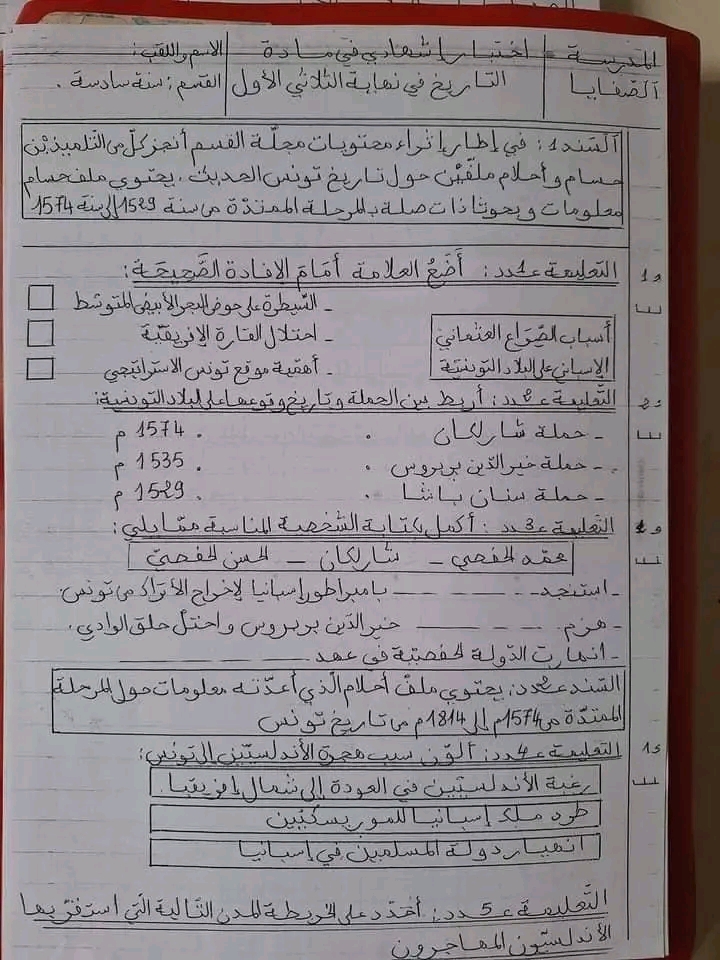 المدرسة = اختبار إشهادي في مادة الاسم واللقب:
الصّفايا التاريخ في نهاية الثلاثي الأول القسم: سنة سادسة.
السّند 1: في إطار إثراء محتويات مجلّة القسم أنجز كلّ من التلميذيْن
حسام وأحلام ملفّيْن حول تاريخ تونس الحديث. يحتوي ملف حسام
معلومات وبحوثا ذات صلة بالمرحلة الممتدّة من سنة 1529 إلى سنة 1574
التعليمة عـ1ـدد: أَضَعُ العلامة أمَامَ الإفادة الصَّحِيحَة:
أسباب الصّراع العثماني
الإسباني على البلاد التونسية
- السّيطرة على حوض البحر الأبيض المتوسّط
- احتلال القارة الإفريقيّة
- أهمّية موقع تونس الاستراتيجي
التّعليمة عـ2ـدد: أربط بين الحملة وتاريخ وقوعها على البلاد التونسية:
- حملة شارلكان . . 1574 م
- حملة خير الدّين بربروس . . 1535 م
- حملة سنان باشا . . 1529 م
التّعليمة عـ3ـدد: أكمل بكتابة الشخصية المناسبة ممّا يلي:
محمّد الحفصي - شارلكان - الحسن الحفصيّ
- استنجد - - - - - - بامبراطور إسبانيا لإخراج الأتراك من تونس
- هزم - - - - - خير الدّين بربروس واحتلّ حلق الوادي.
- انهارت الدّولة الحفصيّة في عهد - - - - - - - -
السّند عـ2ـدد: يحتوي ملفّ أحلام الّذي أعدّته معلومات حول المرحلة
الممتدّة من 1574م إلى 1814م من تاريخ تونس
التعليمة عـ4ـدد: ألوّن سبب هجرة الأندلسيّين إلى تونس:
رغبة الأندلسيّين في العودة إلى شمال إفريقيا.
طرد ملك إسبانيا للموريسكيّين
انهيار دولة المسلمين في إسبانيا
التّعليمة عـ5ـدد: أحدّد على الخريطة المدن التّالية الّتي استقرّ بها
الأندلسيّون المهاجرون